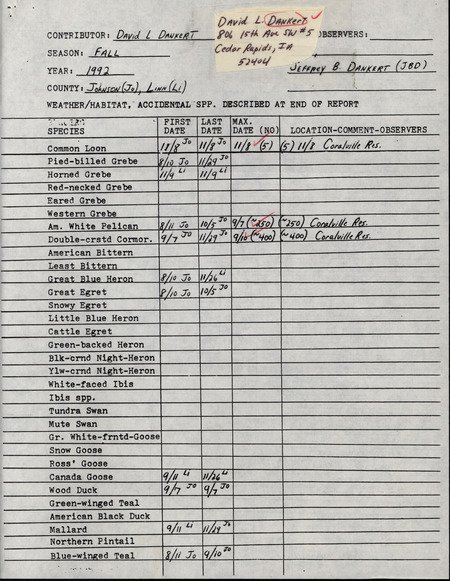 CONTRIBUTOR: David L Dankert
David L. Dankert
806 15th Ave SW #5
Cedar Rapids, IA
52404
OBSERVERS:
SEASON: Fall
YEAR: 1992
Jeffrey B. Dankert (JBD)
COUNTY: Johnson (Jo), Linn (Li)
WEATHER/HABITAT, ACCIDENTAL SPP. DESCRIBED AT END OF REPORT
FIRST LAST MAX.
SPECIES DATE DATE DATE (NO) LOCATION-COMMENT-OBSERVERS
Common Loon 11/8 Jo 11/8 (5) (5) 11/8 Coralville Res.
Pied-billed Grebe 8/10 Jo 11/29 Jo
Horned Grebe 11/9 Li 11/9 Li
Red-necked Grebe
Eared Grebe
Western Grebe
Am. White Pelican 8/11 Jo 10/5 Jo 9/7 (~250) (~250) Coralville Res.
Double-crstd Cormor. 9/7 Jo 11/29 Jo 9/10 (~400) (~400) Coralville Res.
American Bittern
Least Bittern
Great Blue Heron 8/10 Jo 11/26 Li
Great Egret 8/10 Jo 10/5 Jo
Snowy Egret
Little Blue Heron
Cattle Egret
Green-backed Heron
Blk-crnd Night-Heron
Ylw-crnd Night-Heron
White-faced Ibis
Ibis spp.
Tundra Swan
Mute Swan
Gr. White-frntd-Goose
Snow Goose
Ross' Goose
Canada Goose 9/11 Li 11/26 Li
Wood Duck 9/7 Jo 9/7 Jo
Green-winged Teal
American Black Duck
Mallard 9/11 Li 11/29 Jo
Northern Pintail
Blue-winged Teal 8/11 Jo 9/10 Jo